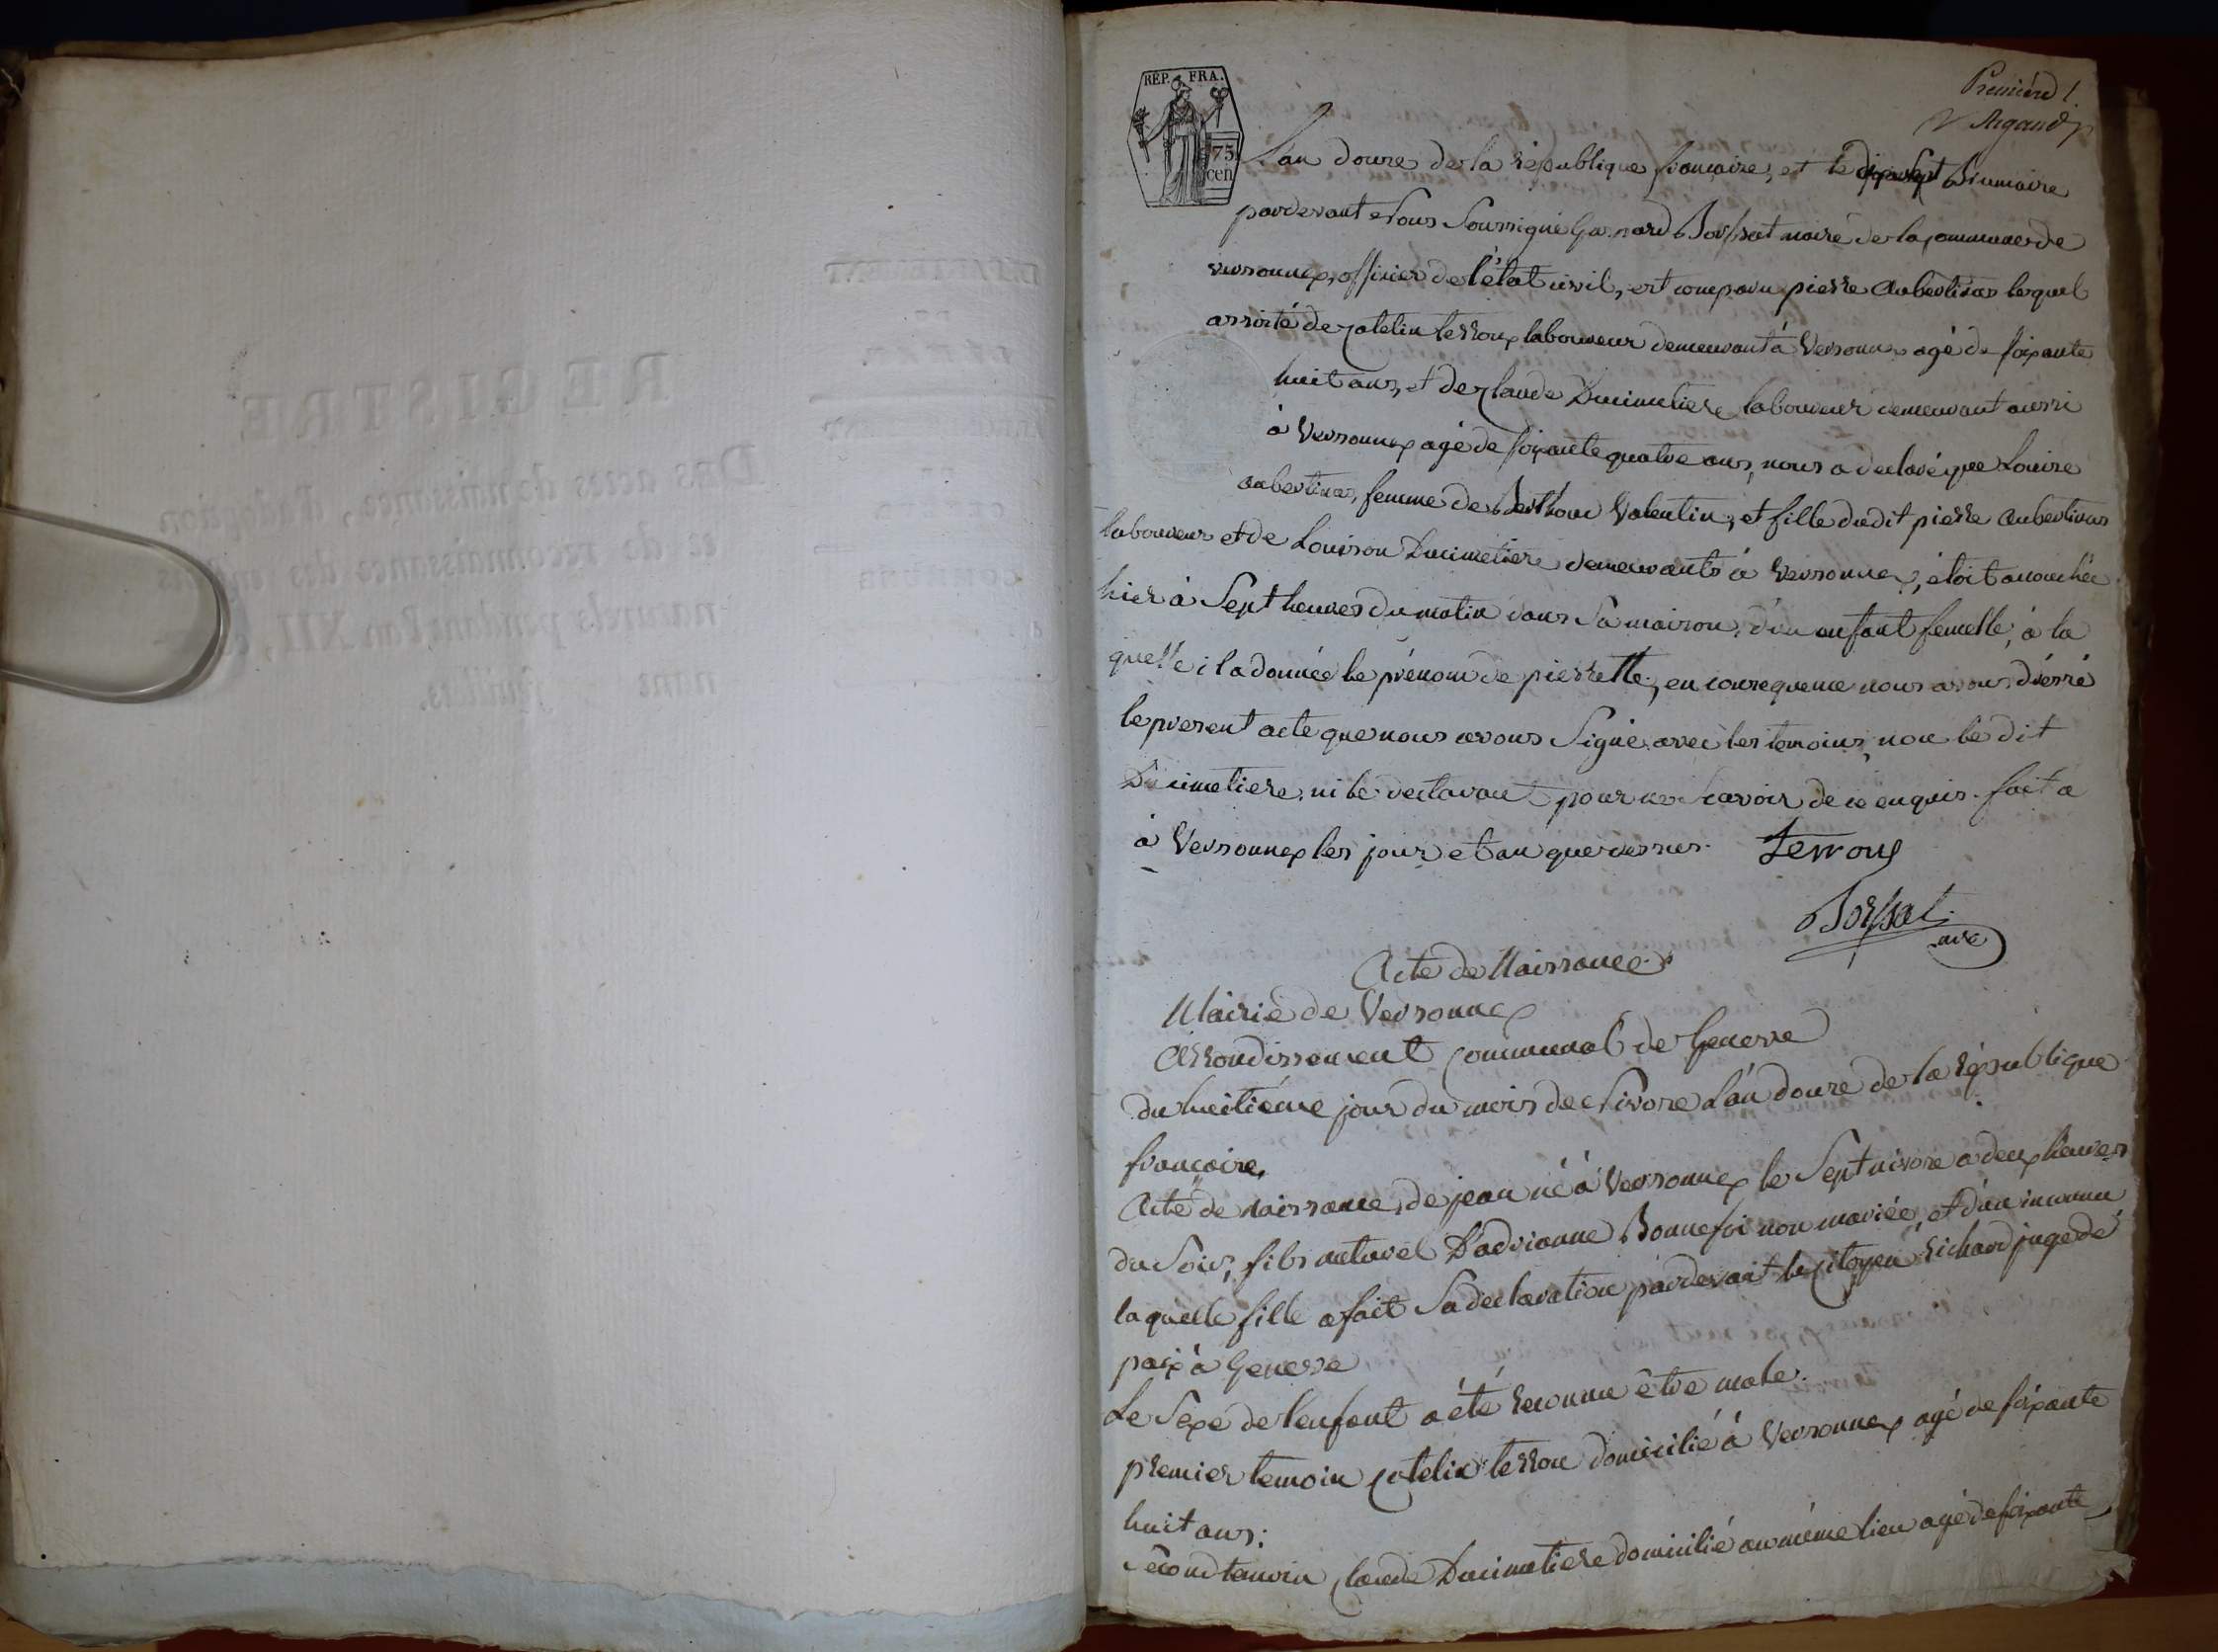 Premiére 1.
Argand
REP. FRA.
75
cen
L'an douze de la république francaise, et le dixsept Brumaire
pardevant Nous Soussigné Borssat maire de la commune de
versonnex, officier de l'état civil, est comparu pierre Aubertinas lequel
assisté de Catelin terroux laboureur demeurant à Versonnex agé de soixante
huit ans, et de Claude Ducimetiere laboureur demeurant aussi
à Versonnex agé de soixante quatre ans, nous a declaré que Louise
aubertinas, femme de Valentin, et fille dudit pierre aubertinas
laboureur et de Louison Ducimetiere demeurants à Versonnex, étoit acouchée
hier à Sept heures du matin dans Sa maison, d'un enfant femelle, à la
quelle il a donnée le prénom de pierrette, en consequence nous avons dressé
le present acte que nous avons Signé avec les temoins, non le dit
Ducimetiere, ni le declarant pour ne Scavoir de ce enquis. fait a
à Versonnex les jour et an que dessus. Terroux
Borssat
Acte de Naissance
Mairie de Versonnex
Arrondissement Communal de Geneve
du huitiéme jour du mois de Nivose L'an douze de la République
française,
Acte de naissance, de jean né à Versonnex le Sept nivose a deux heures
du Soir, fils naturel D'adrianne Bonnefoi non mariée, et d'un inconnu
laquelle fille a fait Sa declaration pardevant le Citoyen Richard juge de
paix à Geneve
Le Sexe de l'enfant a été reconnu être male.
premier temoin Catelin terrou domicilié à Versonnex agé de soixante
huit ans;
Second temoin Claude Ducimetiere domicilié au même lieu agé de soixante